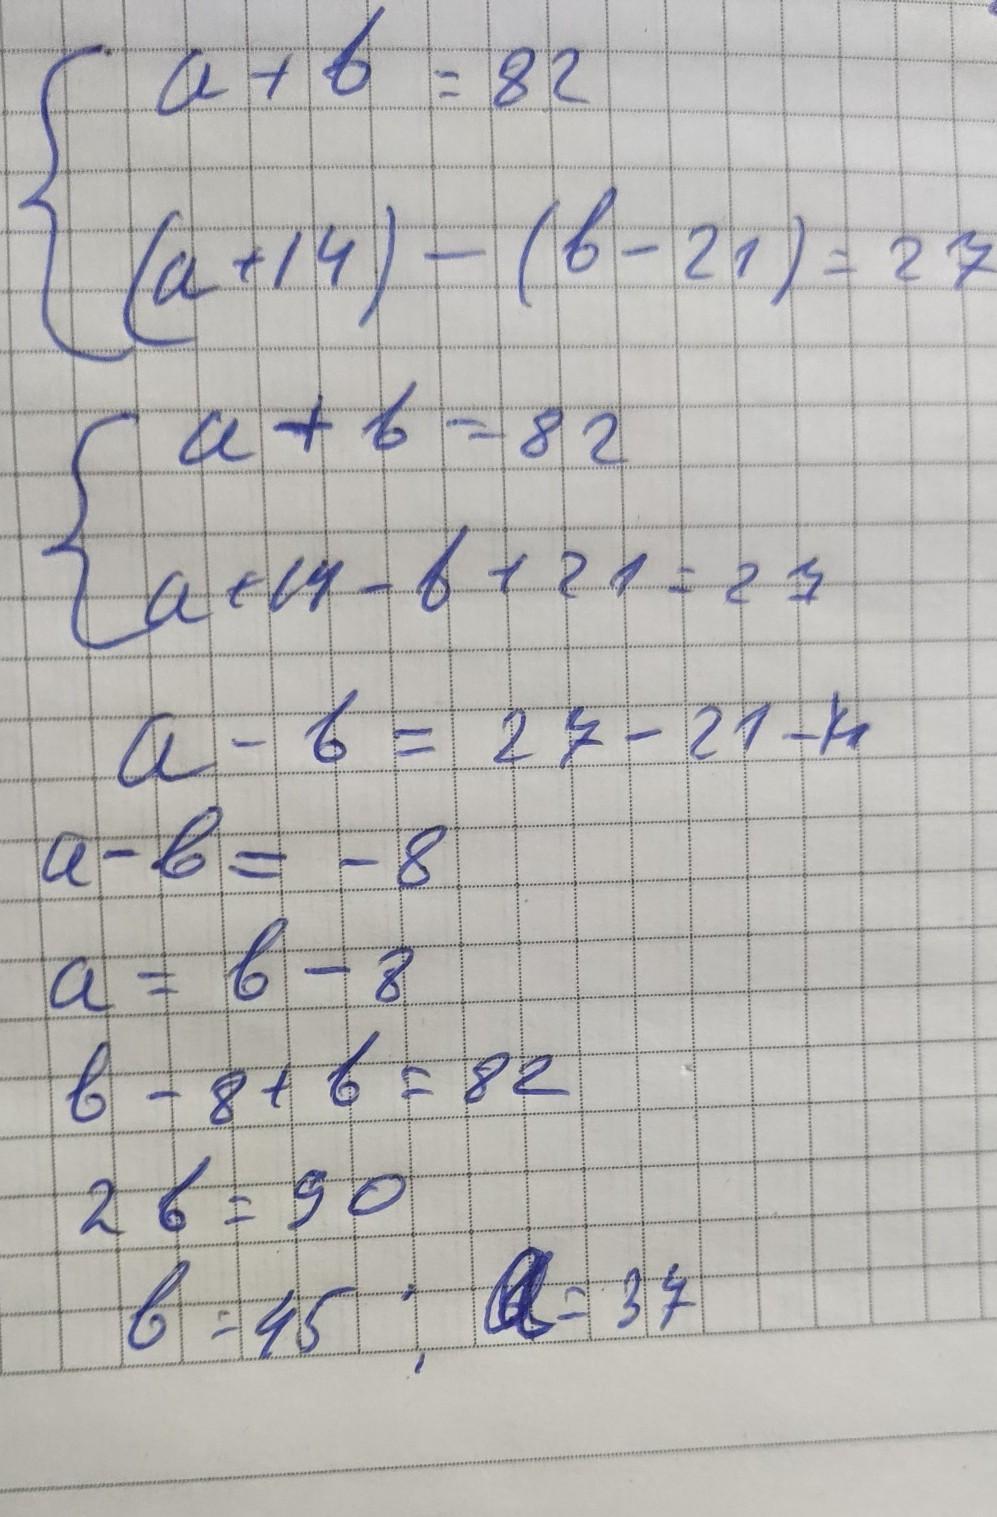 a + b = 82
(a+14) - (b-21) = 27
a + b = 82
a+14-b+21=27
a - b = 27-21-14
a-b = -8
a = b - 8
b - 8 + b = 82
2b = 90
b = 45 ; a = 37